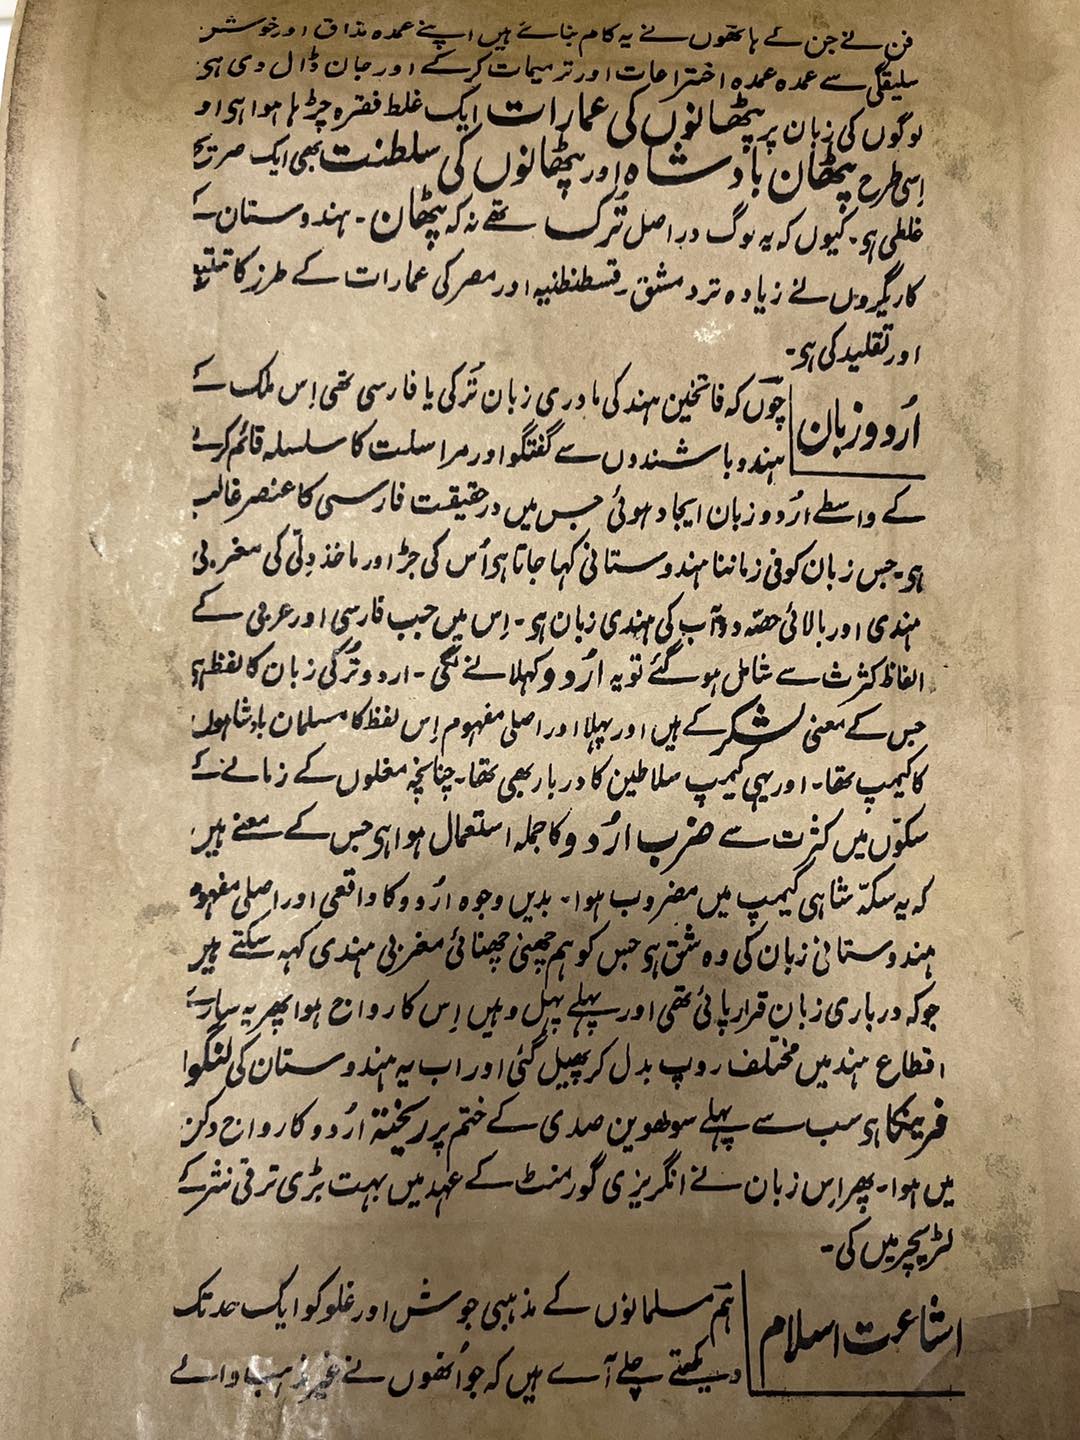 فن نے جن کے ہاتھوں نے یہ کام بنائے ہیں اپنے عمدہ مذاق اور خوش
سلیقگی سے عمدہ عمدہ اختراعات اور ترمیمات کرکے اور جان ڈال دی ہی
لوگوں کی زبان پر پٹھانوں کی عمارات ایک غلط فقرہ چڑہا ہوا ہی او
اِسی طرح پٹھان بادشاہ اور پٹھانوں کی سلطنت بھی ایک صریح
غلطی ہی۔ کیوں کہ یہ لوگ دراصل تُرک تھے نہ کہ پٹھان۔ ہندوستان کے
کاریگروں نے زیادہ تر دمشق۔ قسطنطنیہ اور مصر کی عمارات کے طرز کا تتبع
اور تقلید کی ہی۔
اُردو زبان
چوں کہ فاتحین ہند کی مادری زبان تُرکی یا فارسی تھی اِس ملک کے
ہندو باشندوں سے گفتگو اور مراسلت کا سلسلہ قائم کرنے
کے واسطے اُردو زبان ایجاد ہوئی جس میں درحقیقت فارسی کا عنصر غالب
ہی۔ جس زبان کو فی زماننا ہندوستانی کہا جاتا ہی اُس کی جڑ اور ماخذ دِلّی کی مغربی
ہندی اور بالائی حصّہ دوآب کی ہندی زبان ہی۔ اِس میں جب فارسی اور عربی کے
الفاظ کثرت سے شامل ہو گئے تو یہ اُردو کہلانے لگی۔ اردو تُرکی زبان کا لفظ ہی
جس کے معنی لشکر کے ہیں اور پہلا اور اصلی مفہوم اِس لفظ کا مسلمان بادشاہوں
کا کیمپ تھا۔ اور یہی کیمپ سلاطین کا دربار بھی تھا۔ چنانچہ مغلوں کے زمانے کے
سکّوں میں کثرت سے ضرب اُردو کا جملہ استعمال ہوا ہی جس کے معنے ہیں
کہ یہ سکّہ شاہی کیمپ میں مضروب ہوا۔ بدیں وجوہ اُردو کا واقعی اور اصلی مفہوم
ہندوستانی زبان کی وہ شق ہی جس کو ہم چھنی چھنائی مغربی ہندی کہہ سکتے ہیں
جو کہ درباری زبان قرار پائی تھی اور پہلے پہل وہیں اِس کا رواج ہوا پھر یہ سارے
اقطاع ہند میں مختلف روپ بدل کر پھیل گئی اور اب یہ ہندوستان کی لنگوا
فرینکا ہی سب سے پہلے سولھویں صدی کے ختم پر ریختۃ اُردو کا رواج دکن
میں ہوا۔ پھر اِس زبان نے انگریزی گورمنٹ کے عہد میں بہت بڑی ترقی نثر کے
لٹریچر میں کی۔
اشاعت اسلام
ہم مسلمانوں کے مذہبی جوش اور غلو کو ایک حد تک
دیکھتے چلے آئے ہیں کہ جو اُنھوں نے غیر مذہب والے